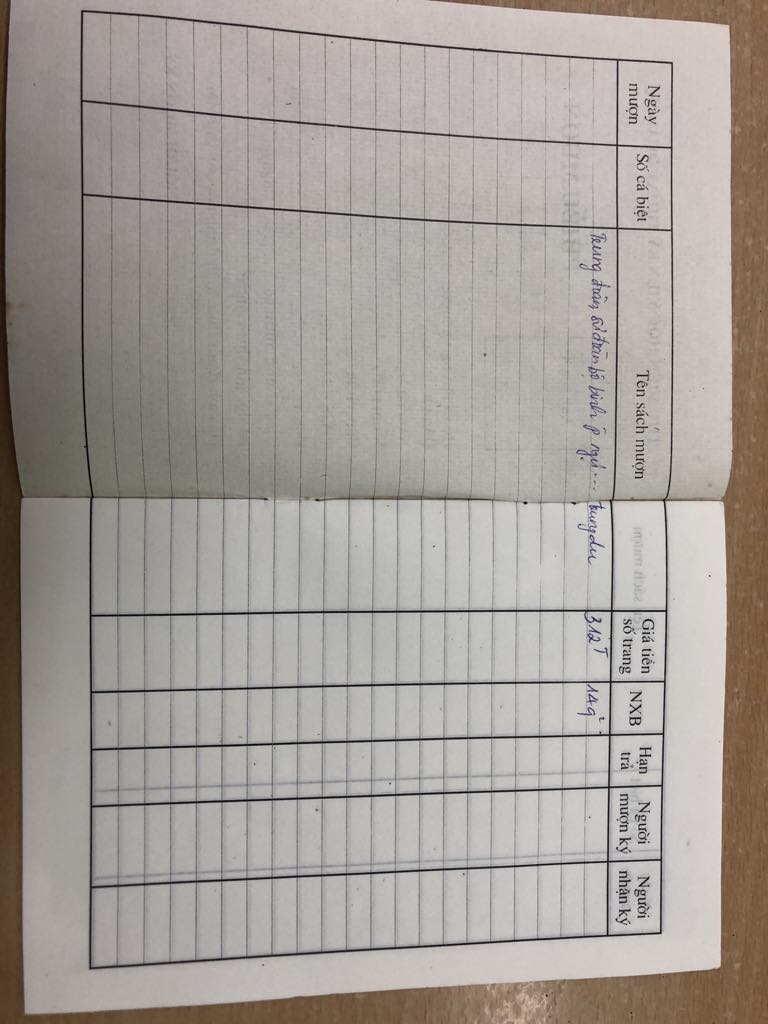 Ngày mượn
Số cá biệt
Tên sách mượn
Giá tiền số trang
NXB
Hạn trả
Người mượn ký
Người nhận ký
Trung đoàn, sư đoàn bộ binh p ngự... trung du
312T
149